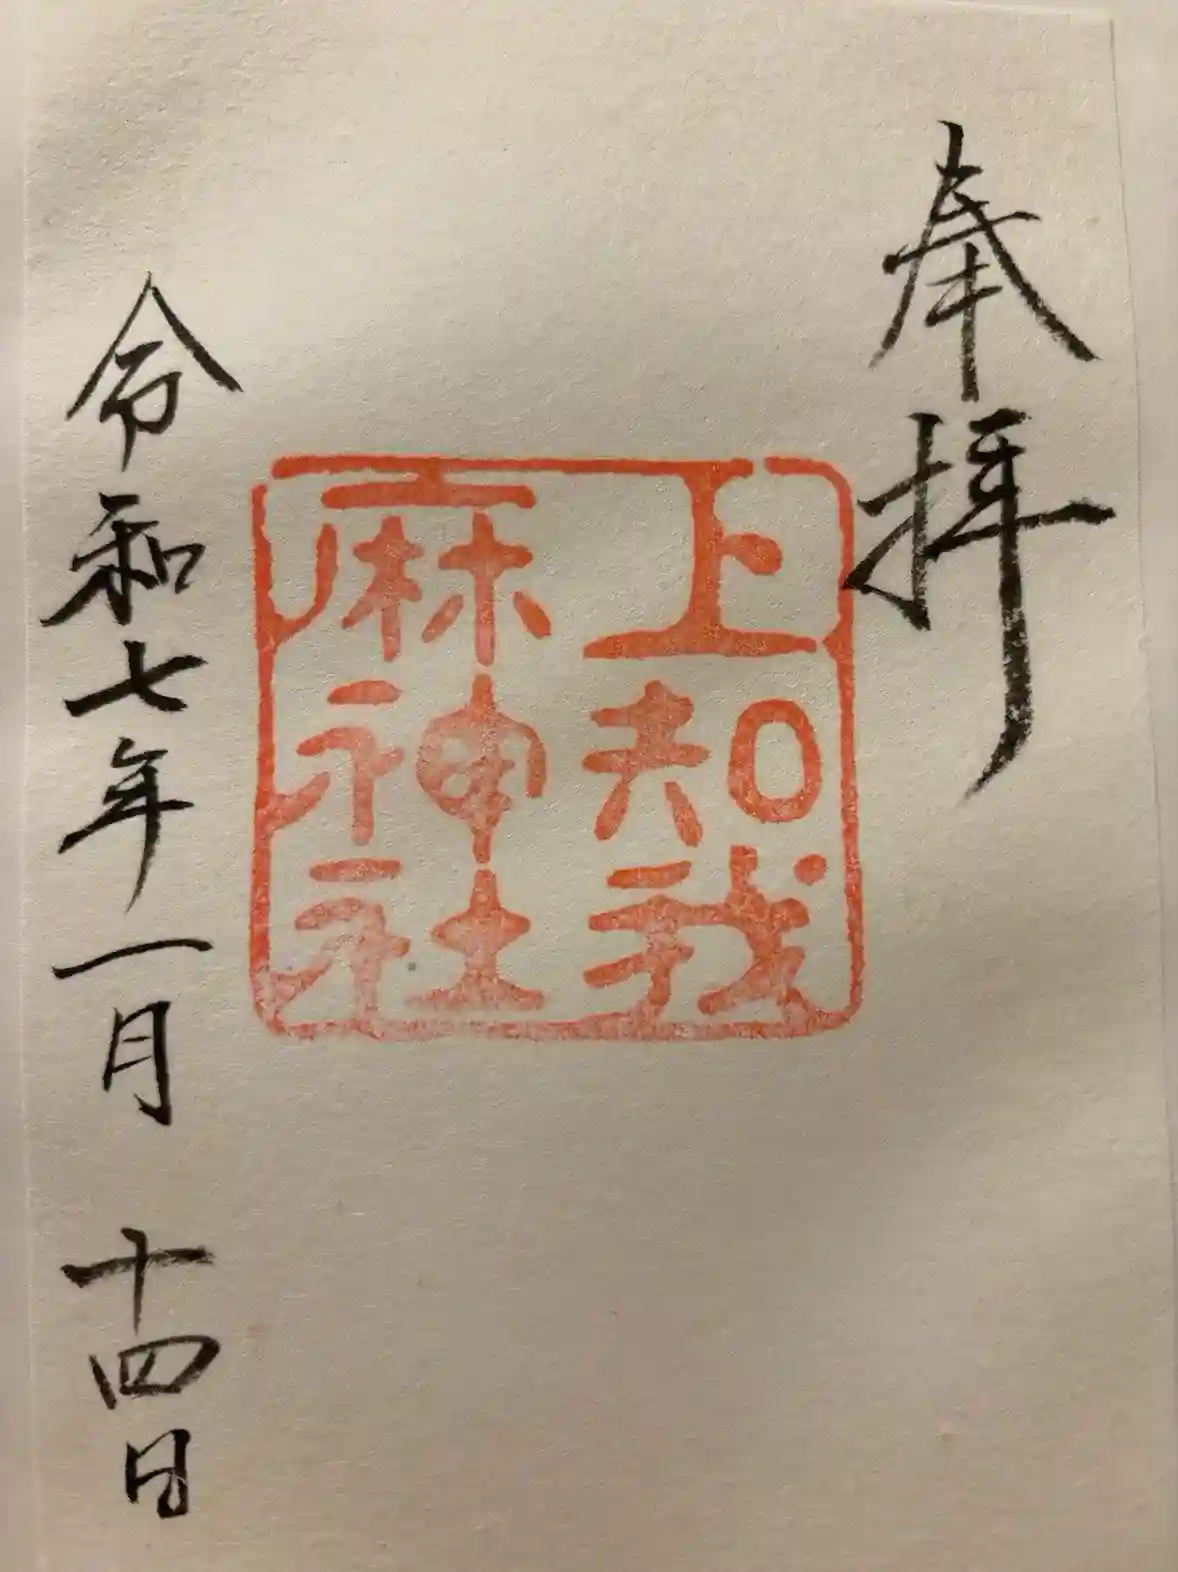 奉拝
上知我
麻神社
令和七年一月十四日